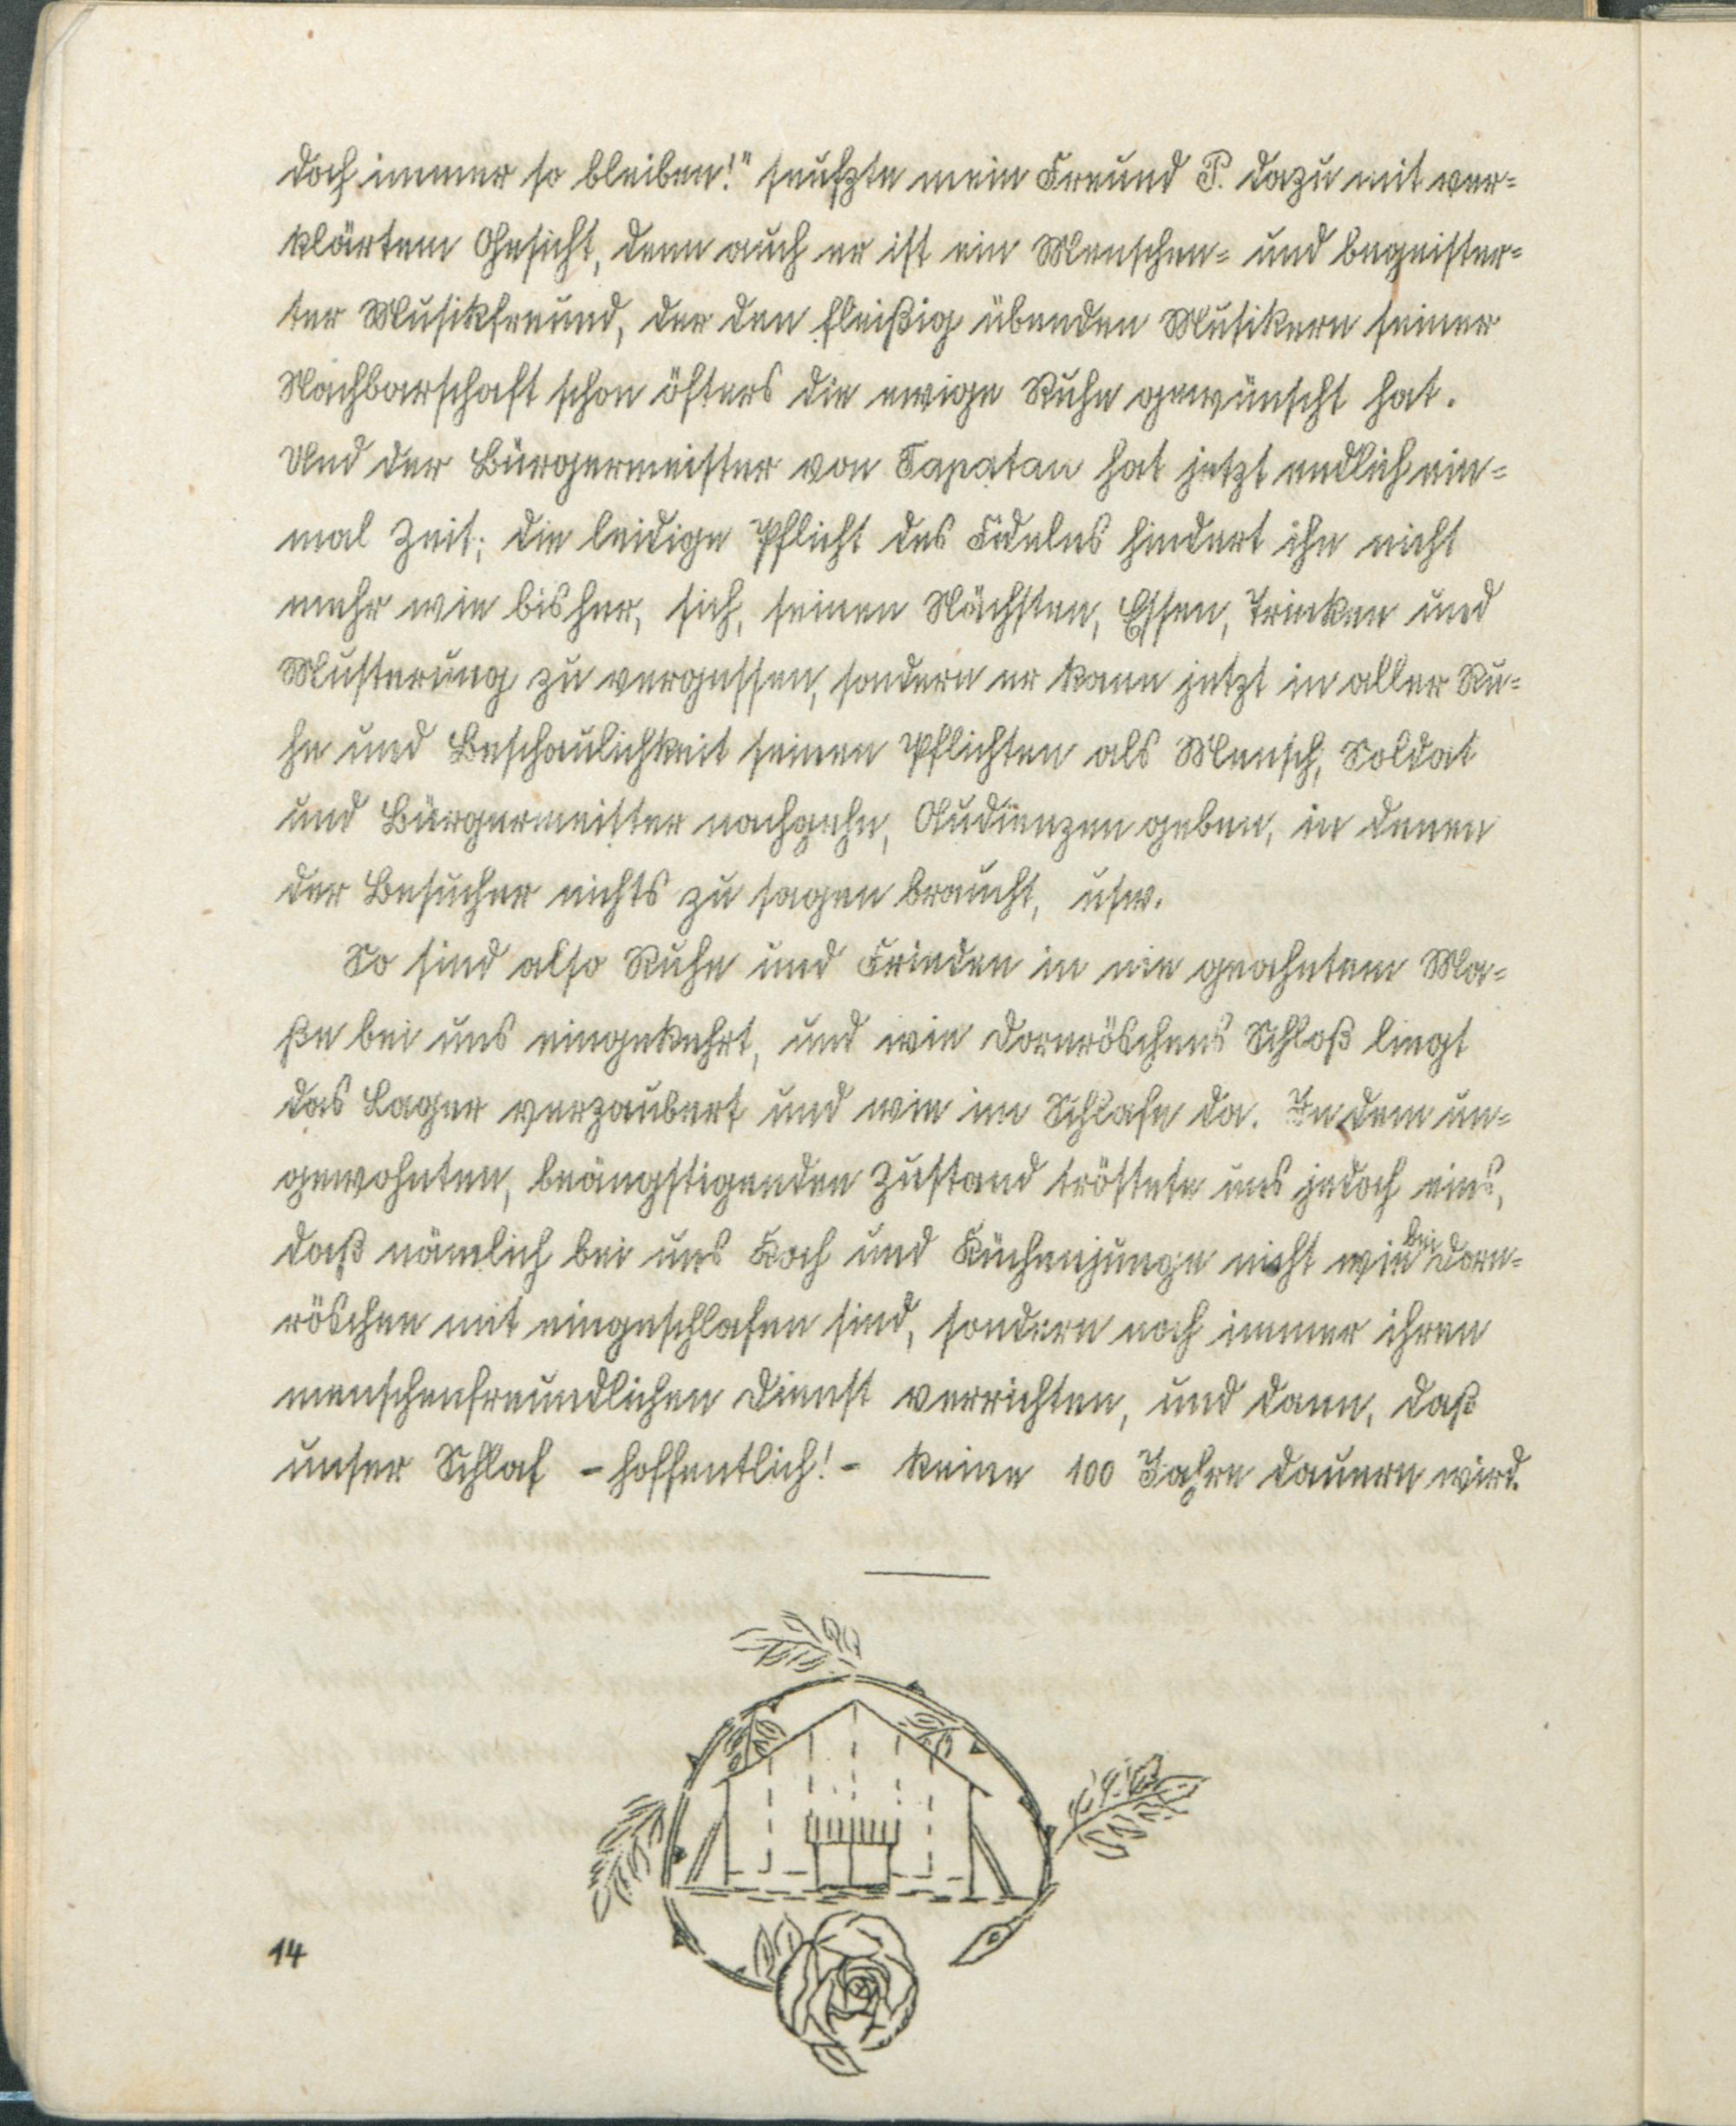 doch immer so bleiben!" seufzte mein Freund P. dazu mit ver=
klärtem Gesicht, denn auch er ist ein Menschen= und begeister=
ter Musikfreund, der den fleißig übenden Musikern seiner
Nachbarschaft schon öfters die ewige Ruhe gewünscht hat.
Und der Bürgermeister von Tapatau hat jetzt endlich ein=
mal Zeit; die leidige Pflicht des Fidelns hindert ihn nicht
mehr wie bisher, sich, seinen Nächsten, Essen, Trinken und
Musterung zu vergessen, sondern er kann jetzt in aller Ru=
he und Beschaulichkeit seinen Pflichten als Mensch, Soldat
und Bürgermeister nachgehn, Audienzen geben, in denen
der Besucher nichts zu sagen braucht, usw.
So sind also Ruhe und Frieden in nie geahntem Ma=
ße bei uns eingekehrt, und wie Dornröschens Schloß liegt
das Lager verzaubert und wie im Schlafe da. In dem un=
gewohnten, beängstigenden Zustand tröstete uns jedoch eins,
daß nämlich bei uns Koch und Küchenjunge nicht wie bei Dorn=
röschen mit eingeschlafen sind, sondern noch immer ihren
menschenfreundlichen Dienst verrichten, und dann, daß
unser Schlaf - hoffentlich! - keine 100 Jahre dauern wird.
14